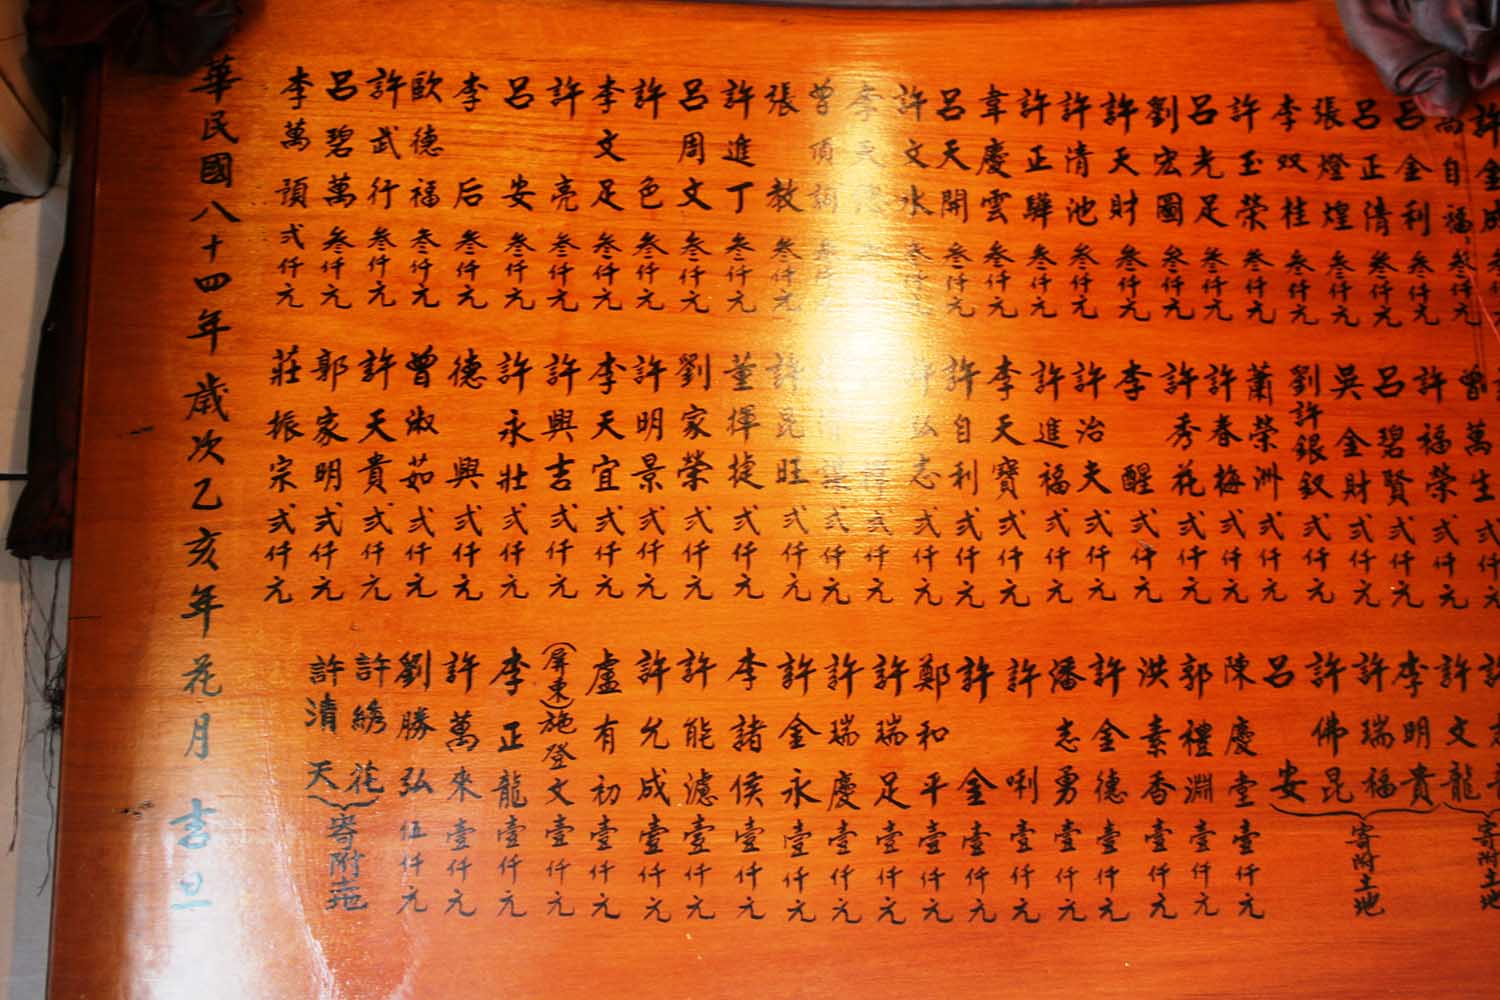 許金成
高自福 叁仟元
呂金利 叁仟元
呂正清 叁仟元
張燈煌 叁仟元
李双桂 叁仟元
許玉榮 叁仟元
呂光足 叁仟元
劉宏圖 叁仟元
許天財 叁仟元
許清池 叁仟元
許正驊 叁仟元
韋慶雲 叁仟元
呂天開 叁仟元
許文水 叁仟元
李
曾頂 叁仟元
張教 叁仟元
許進丁 叁仟元
呂周文 叁仟元
許色 叁仟元
李文足 叁仟元
許亮 叁仟元
呂安 叁仟元
李后 叁仟元
歐德福 叁仟元
許武行 叁仟元
呂碧萬 叁仟元
李萬預 弍仟元
曾萬生 弍仟元
許福榮 弍仟元
呂碧賢 弍仟元
吳金財 弍仟元
劉許銀釵 弍仟元
蕭榮洲 弍仟元
許春梅 弍仟元
許秀花 弍仟元
李醒 弍仟元
許治夫 弍仟元
許進福 弍仟元
李天寶 弍仟元
許自利 弍仟元
許弘志 弍仟元
弍仟元
弍仟元
許昆旺 弍仟元
董揮捷 弍仟元
劉家榮 弍仟元
許明景 弍仟元
李天宜 弍仟元
許興吉 弍仟元
許永壯 弍仟元
德興 弍仟元
曾淑茹 弍仟元
許天貴 弍仟元
郭家明 弍仟元
莊振宗 弍仟元
許文龍
寄附土地
李明貴
許瑞福
許佛昆
呂安
寄附土地
陳慶堂 壹仟元
郭禮淵 壹仟元
洪素香 壹仟元
許金德 壹仟元
潘志勇 壹仟元
許唎 壹仟元
許金 壹仟元
鄭和平 壹仟元
許瑞足 壹仟元
許瑞慶 壹仟元
許金永 壹仟元
李諸侯 壹仟元
許能濾 壹仟元
許允成 壹仟元
盧有初 壹仟元
(屏東)施登文 壹仟元
李正龍 壹仟元
許萬來 壹仟元
劉勝弘 伍仟元
許綉花
許清天
寄附土地
華民國八十四年歲次乙亥年花月吉旦